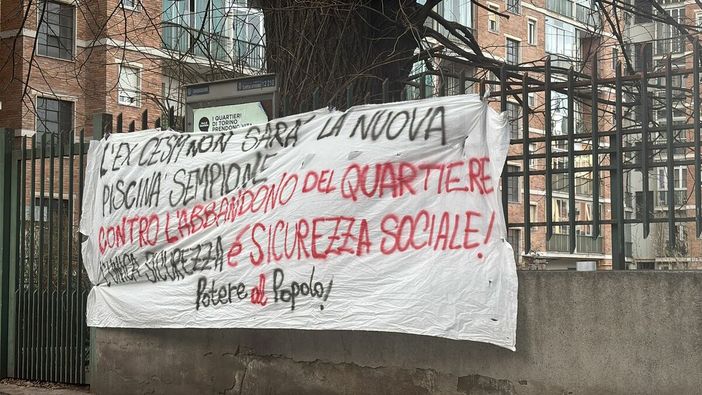 I QUARTIERI
DI TORINO
PRENDONO VITA
L'EX CESM NON SARA' LA NUOVA
PISCINA SEMPIONE
CONTRO L'ABBANDONO DEL QUARTIERE
L'UNICA SICUREZZA é SICUREZZA SOCIALE!
Potere al Popolo!